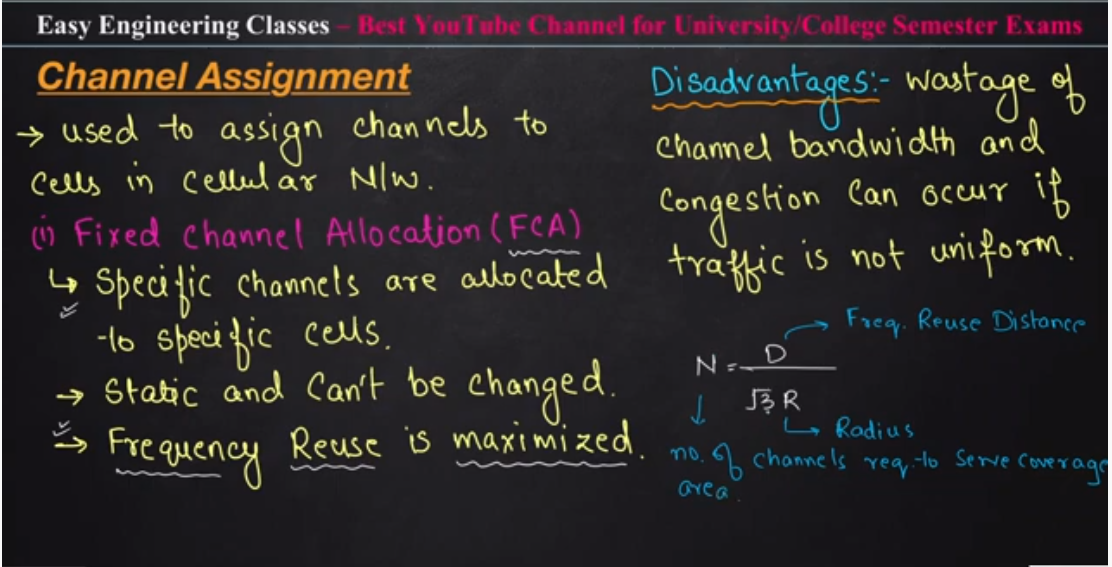 Easy Engineering Classes – Best YouTube Channel for University/College Semester Exams
Channel Assignment
→ used to assign channels to
cells in cellular N/w.
(i) Fixed Channel Allocation (FCA)
↳ Specific channels are allocated
to specific cells.
→ Static and Can't be changed.
→ Frequency Reuse is maximized.
Disadvantages:- wastage of
channel bandwidth and
Congestion Can occur if
traffic is not uniform.
→ Freq. Reuse Distance
N = D
√3 R
↳ Radius
↓
no. of channels req. to serve coverage
area.